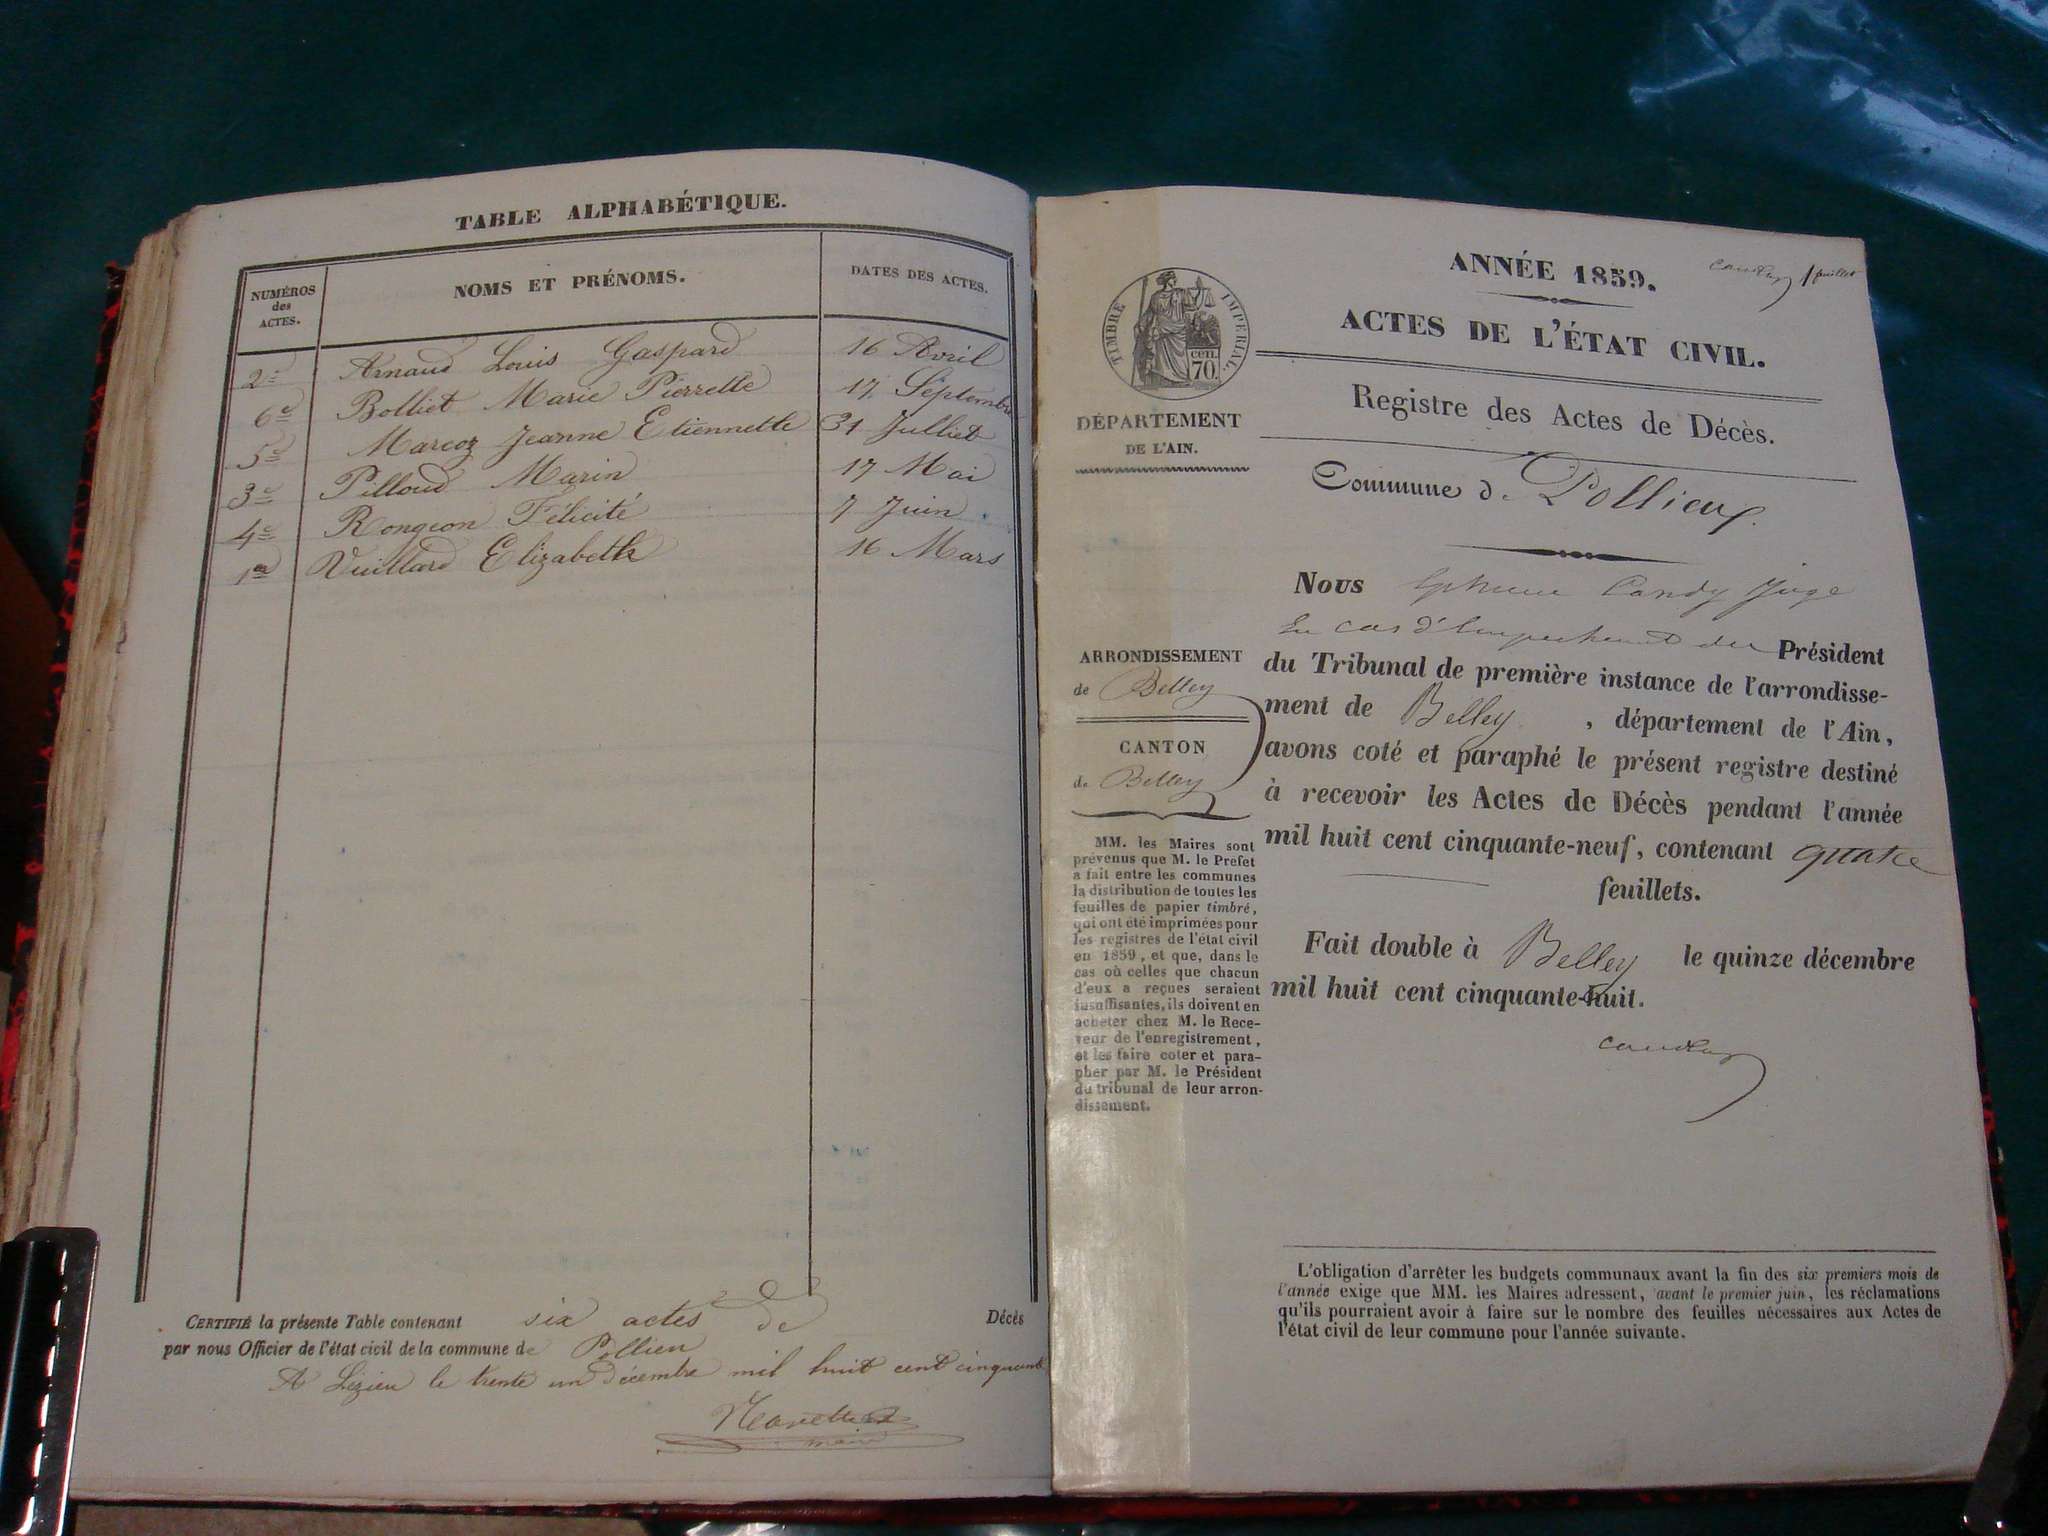 TABLE ALPHABÉTIQUE.
NUMÉROS des ACTES.
NOMS ET PRÉNOMS.
DATES DES ACTES.
2e Arnaud Louis Gaspard 16 Avril
6e Bolliet Marie Pierrette 17 Septembre
5e Marcoz Jeanne Etiennette 31 Julliet
3e Pilloud Marin 17 Mai
4e Rongeon Félicité 7 Juin
1er Vuillard Elizabeth 16 Mars
CERTIFIÉ la présente Table contenant six actes de Décès
par nous Officier de l'état civil de la commune de Pollieu
A Lézieu le trente un décembre mil huit cent cinquante
maire
ANNÉE 1859.
ACTES DE L'ÉTAT CIVIL.
TIMBRE IMPÉRIAL.
cen. 70.
Registre des Actes de Décès.
DÉPARTEMENT
DE L'AIN.
Commune de Pollieux.
Nous Candy Juge
En cas d'Empechement du Président
du Tribunal de première instance de l'arrondisse-
ment de Belley, département de l'Ain,
avons coté et paraphé le présent registre destiné
à recevoir les Actes de Décès pendant l'année
mil huit cent cinquante-neuf, contenant quatre
feuillets.
Fait double à Belley le quinze décembre
mil huit cent cinquante-huit.
Candy
ARRONDISSEMENT
de Belley
CANTON
de Belley
MM. les Maires sont
prévenus que M. le Prefet
a fait entre les communes
la distribution de toutes les
feuilles de papier timbré,
qui ont été imprimées pour
les registres de l'état civil
en 1859, et que, dans le
cas où celles que chacun
d'eux a reçues seraient
insuffisantes, ils doivent en
acheter chez M. le Rece-
veur de l'enregistrement,
et les faire coter et para-
pher par M. le Président
du tribunal de leur arron-
dissement.
L'obligation d'arrêter les budgets communaux avant la fin des six premiers mois de
l'année exige que MM. les Maires adressent, avant le premier juin, les réclamations
qu'ils pourraient avoir à faire sur le nombre des feuilles nécessaires aux Actes de
l'état civil de leur commune pour l'année suivante.